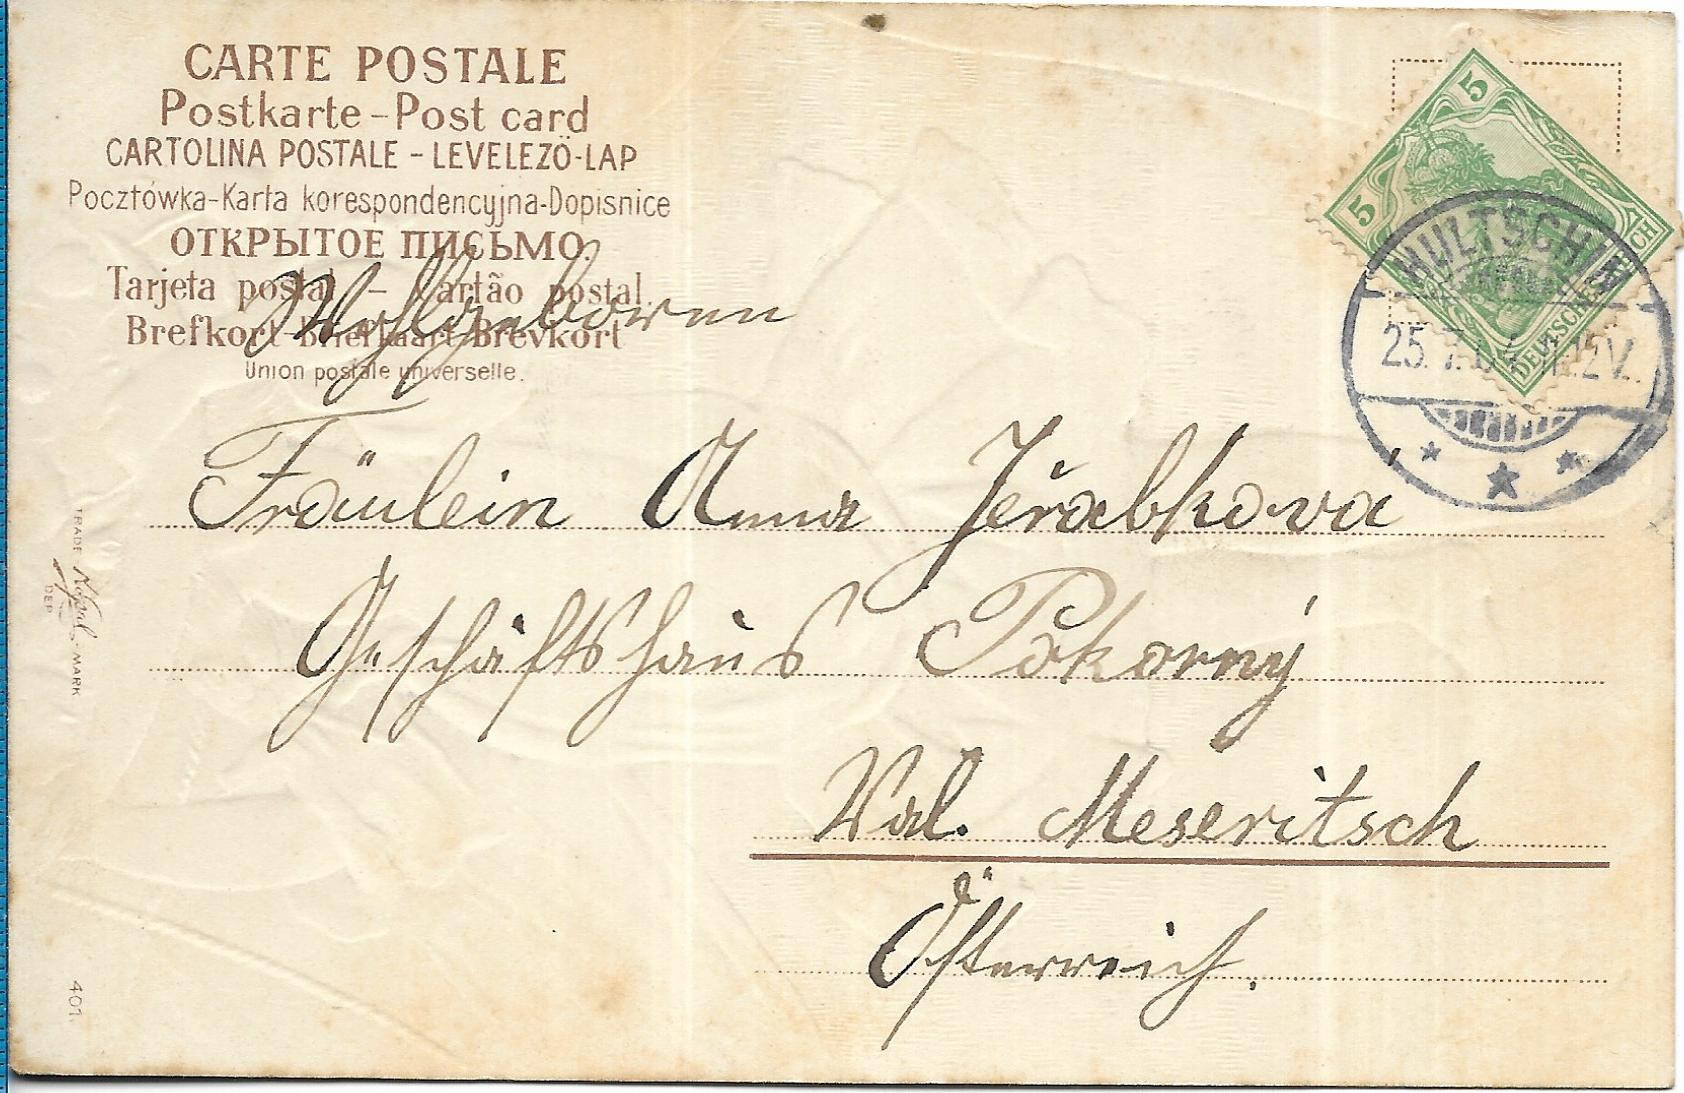 CARTE POSTALE
Postkarte - Post card
CARTOLINA POSTALE - LEVELEZÖ-LAP
Pocztówka-Karta korespondencyjna-Dopisnice
ОТКРЫТОЕ ПИСЬМО.
Tarjeta postal - Cartão postal.
Brefkort-Briefkaart-Brevkort
Union postale universelle.
5
5
DEUTSCHES
CH
HULTSCHIN
25.7.
12V.
Wohlgeboren
Fräulein Anna Jeřabkova
Geschäftshaus Pokorný
Val. Meseritsch
Österreich.
TRADE MARK
DEP
401.